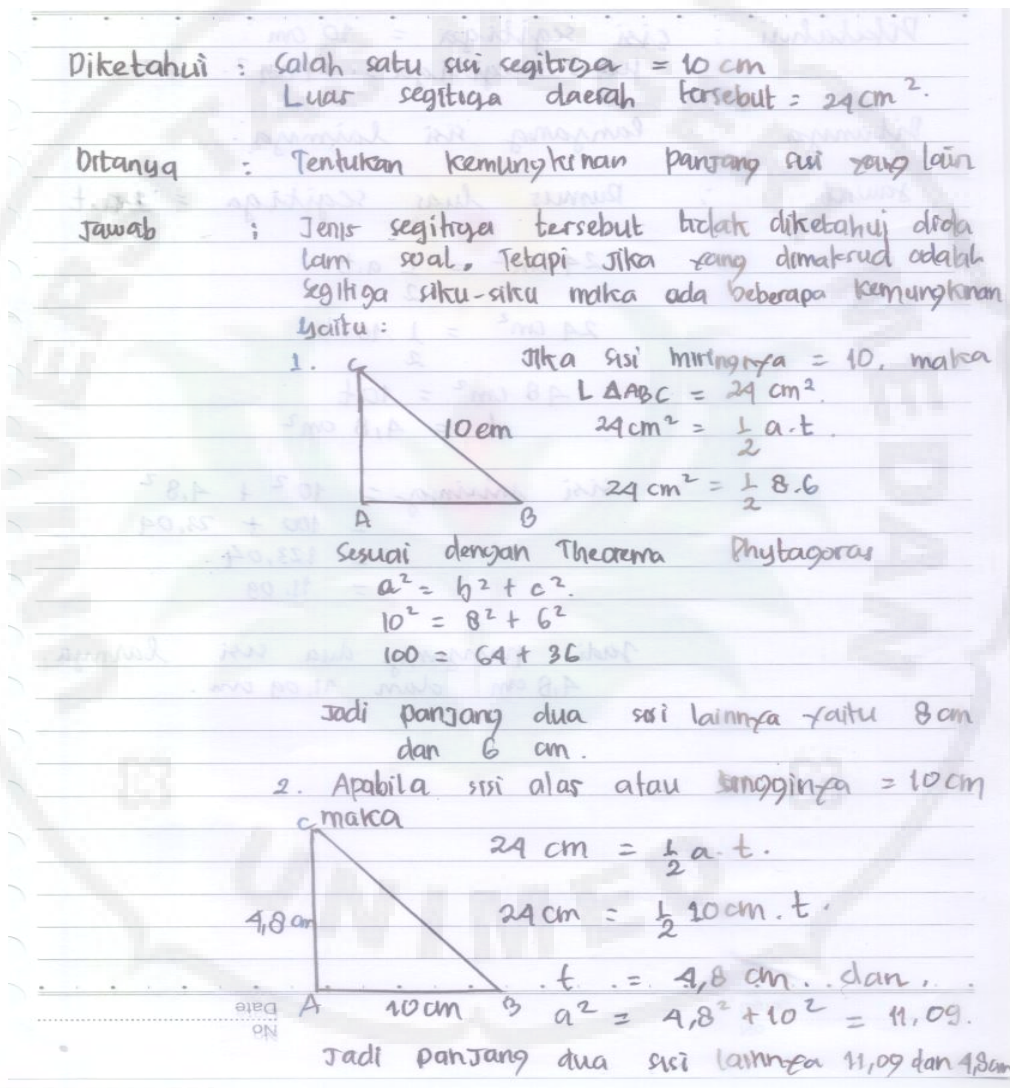 Diketahui : Salah satu sisi segitiga = 10 cm
Luas segitiga daerah tersebut = 24 cm².
Ditanya : Tentukan kemungkinan panjang sisi yang lain
Jawab : Jenis segitiga tersebut tidak diketahui dida
lam soal. Tetapi Jika yang dimaksud adalah
segitiga siku-siku maka ada beberapa kemungkinan
yaitu:
1. Jika sisi miringnya = 10, maka
C
L ΔABC = 24 cm².
10 cm
24 cm² = 1/2 a.t.
24 cm² = 1/2 8.6
A B
Sesuai dengan Theorema Phytagoras
= a² = b² + c².
10² = 8² + 6²
100 = 64 + 36
Jadi panjang dua sisi lainnya yaitu 8 cm
dan 6 cm.
2. Apabila sisi alas atau tingginya = 10 cm
maka
C
24 cm = 1/2 a. t.
4,8 cm
24 cm = 1/2 10 cm. t.
t = 4,8 cm. dan
A 10 cm B a² = 4,8² + 10² = 11,09.
Jadi panjang dua sisi lainnya 11,09 dan 4,8 cm
UNIVERSITAS NEGERI MEDAN
UNIMED
Date
No